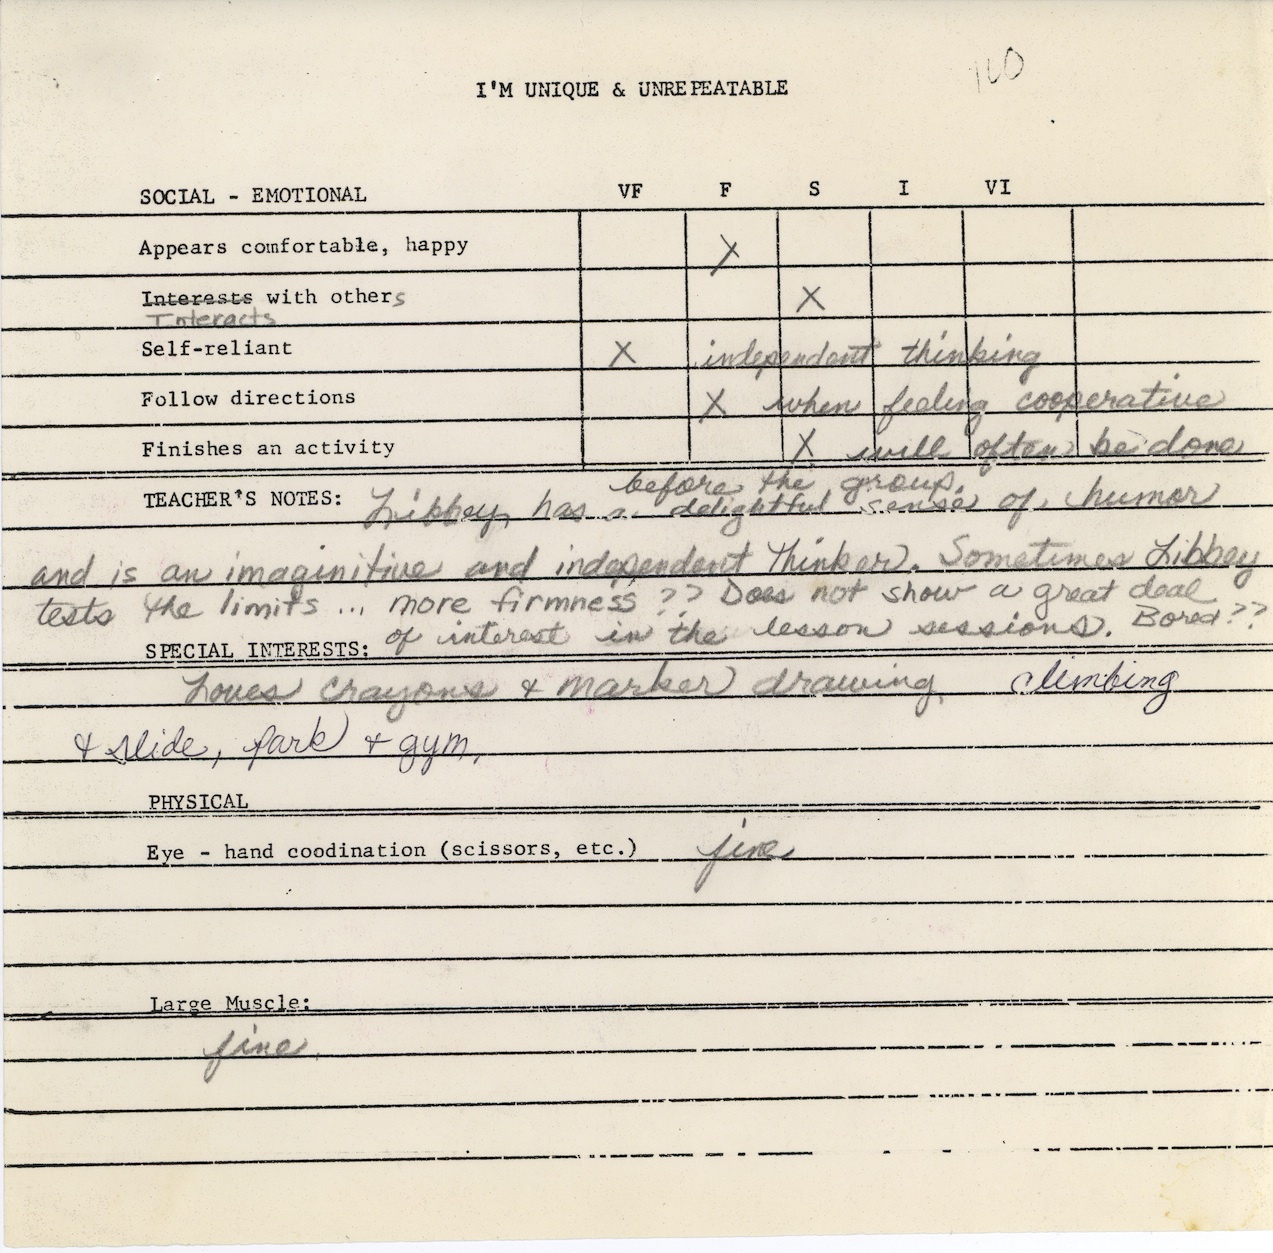 160
I'M UNIQUE & UNREPEATABLE
SOCIAL - EMOTIONAL VF F S I VI
Appears comfortable, happy X
Interests with others X
Interacts
Self-reliant X independent thinking
Follow directions X when feeling cooperative
Finishes an activity X will often be done
before the group.
TEACHER'S NOTES: Libbey has a delightful sense of humor
and is an imaginitive and independent thinker. Sometimes Libbey
tests the limits ... more firmness?? Does not show a great deal
of interest in the lesson sessions. Bored??
SPECIAL INTERESTS:
Loves crayons & marker drawing, climbing
& slide, park & gym.
PHYSICAL
Eye - hand coodination (scissors, etc.) fine
Large Muscle:
fine